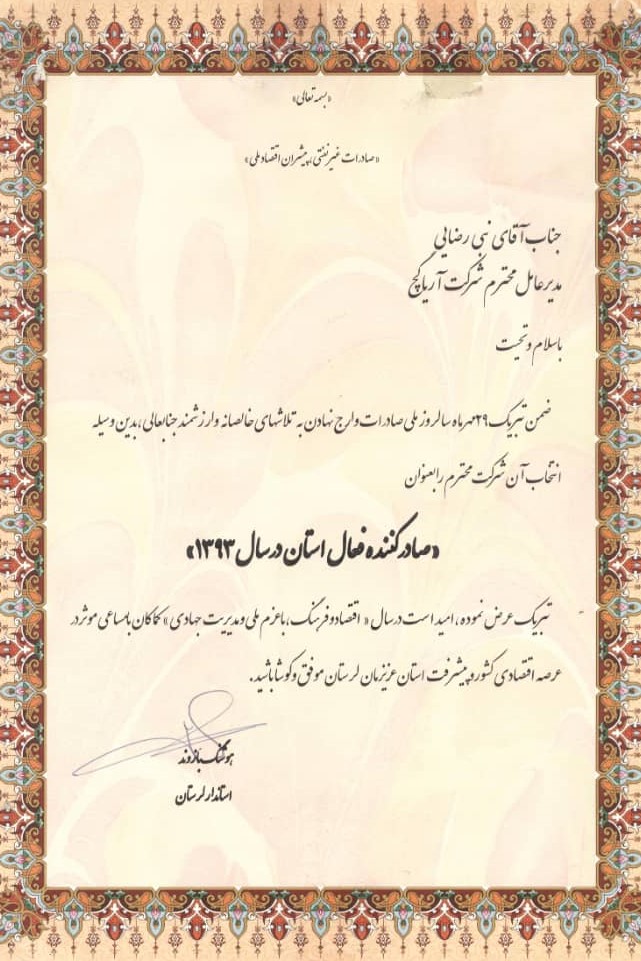 «بسمه تعالی»
«صادرات غیرنفتی، پیشران اقتصاد ملی»
جناب آقای نبی رضایی
مدیرعامل محترم شرکت آریا گچ
با سلام و تحیت
ضمن تبریک ۲۹ مهرماه سالروز ملی صادرات و ارج نهادن به تلاشهای خالصانه و ارزشمند جنابعالی، بدین وسیله
انتخاب آن شرکت محترم را بعنوان
«صادرکننده فعال استان در سال ۱۳۹۳»
تبریک عرض نموده، امید است در سال «اقتصاد و فرهنگ، با عزم ملی و مدیریت جهادی» کماکان با مساعی موثر در
عرصه اقتصادی کشور و پیشرفت استان عزیزمان لرستان موفق و کوشا باشید.
هوشنگ بازوند
استاندار لرستان